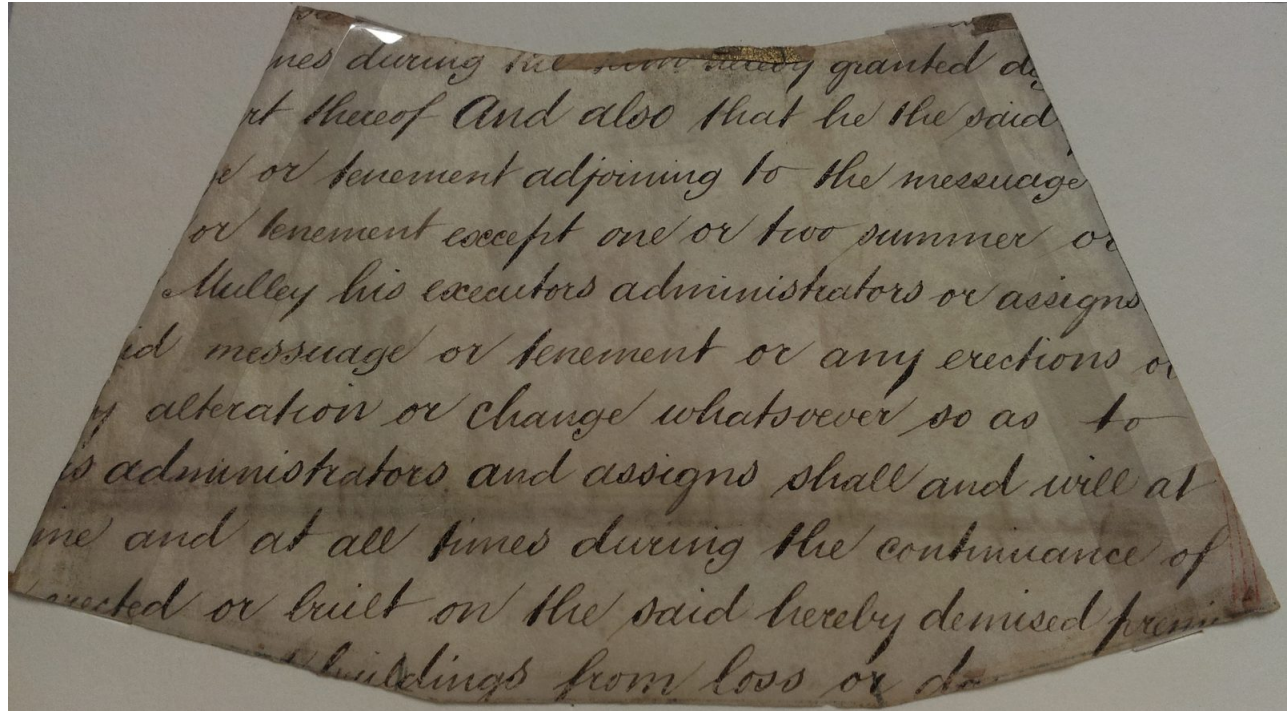 nes during the term hereby granted
rt thereof And also that he the said
or tenement adjoining to the messuage
or tenement except one or two summer or
Mulley his executors administrators or assigns
id messuage or tenement or any erections or
alteration or change whatsoever so as to
is administrators and assigns shall and will at
me and at all times during the continuance of
erected or built on the said hereby demised premi
buildings from loss or